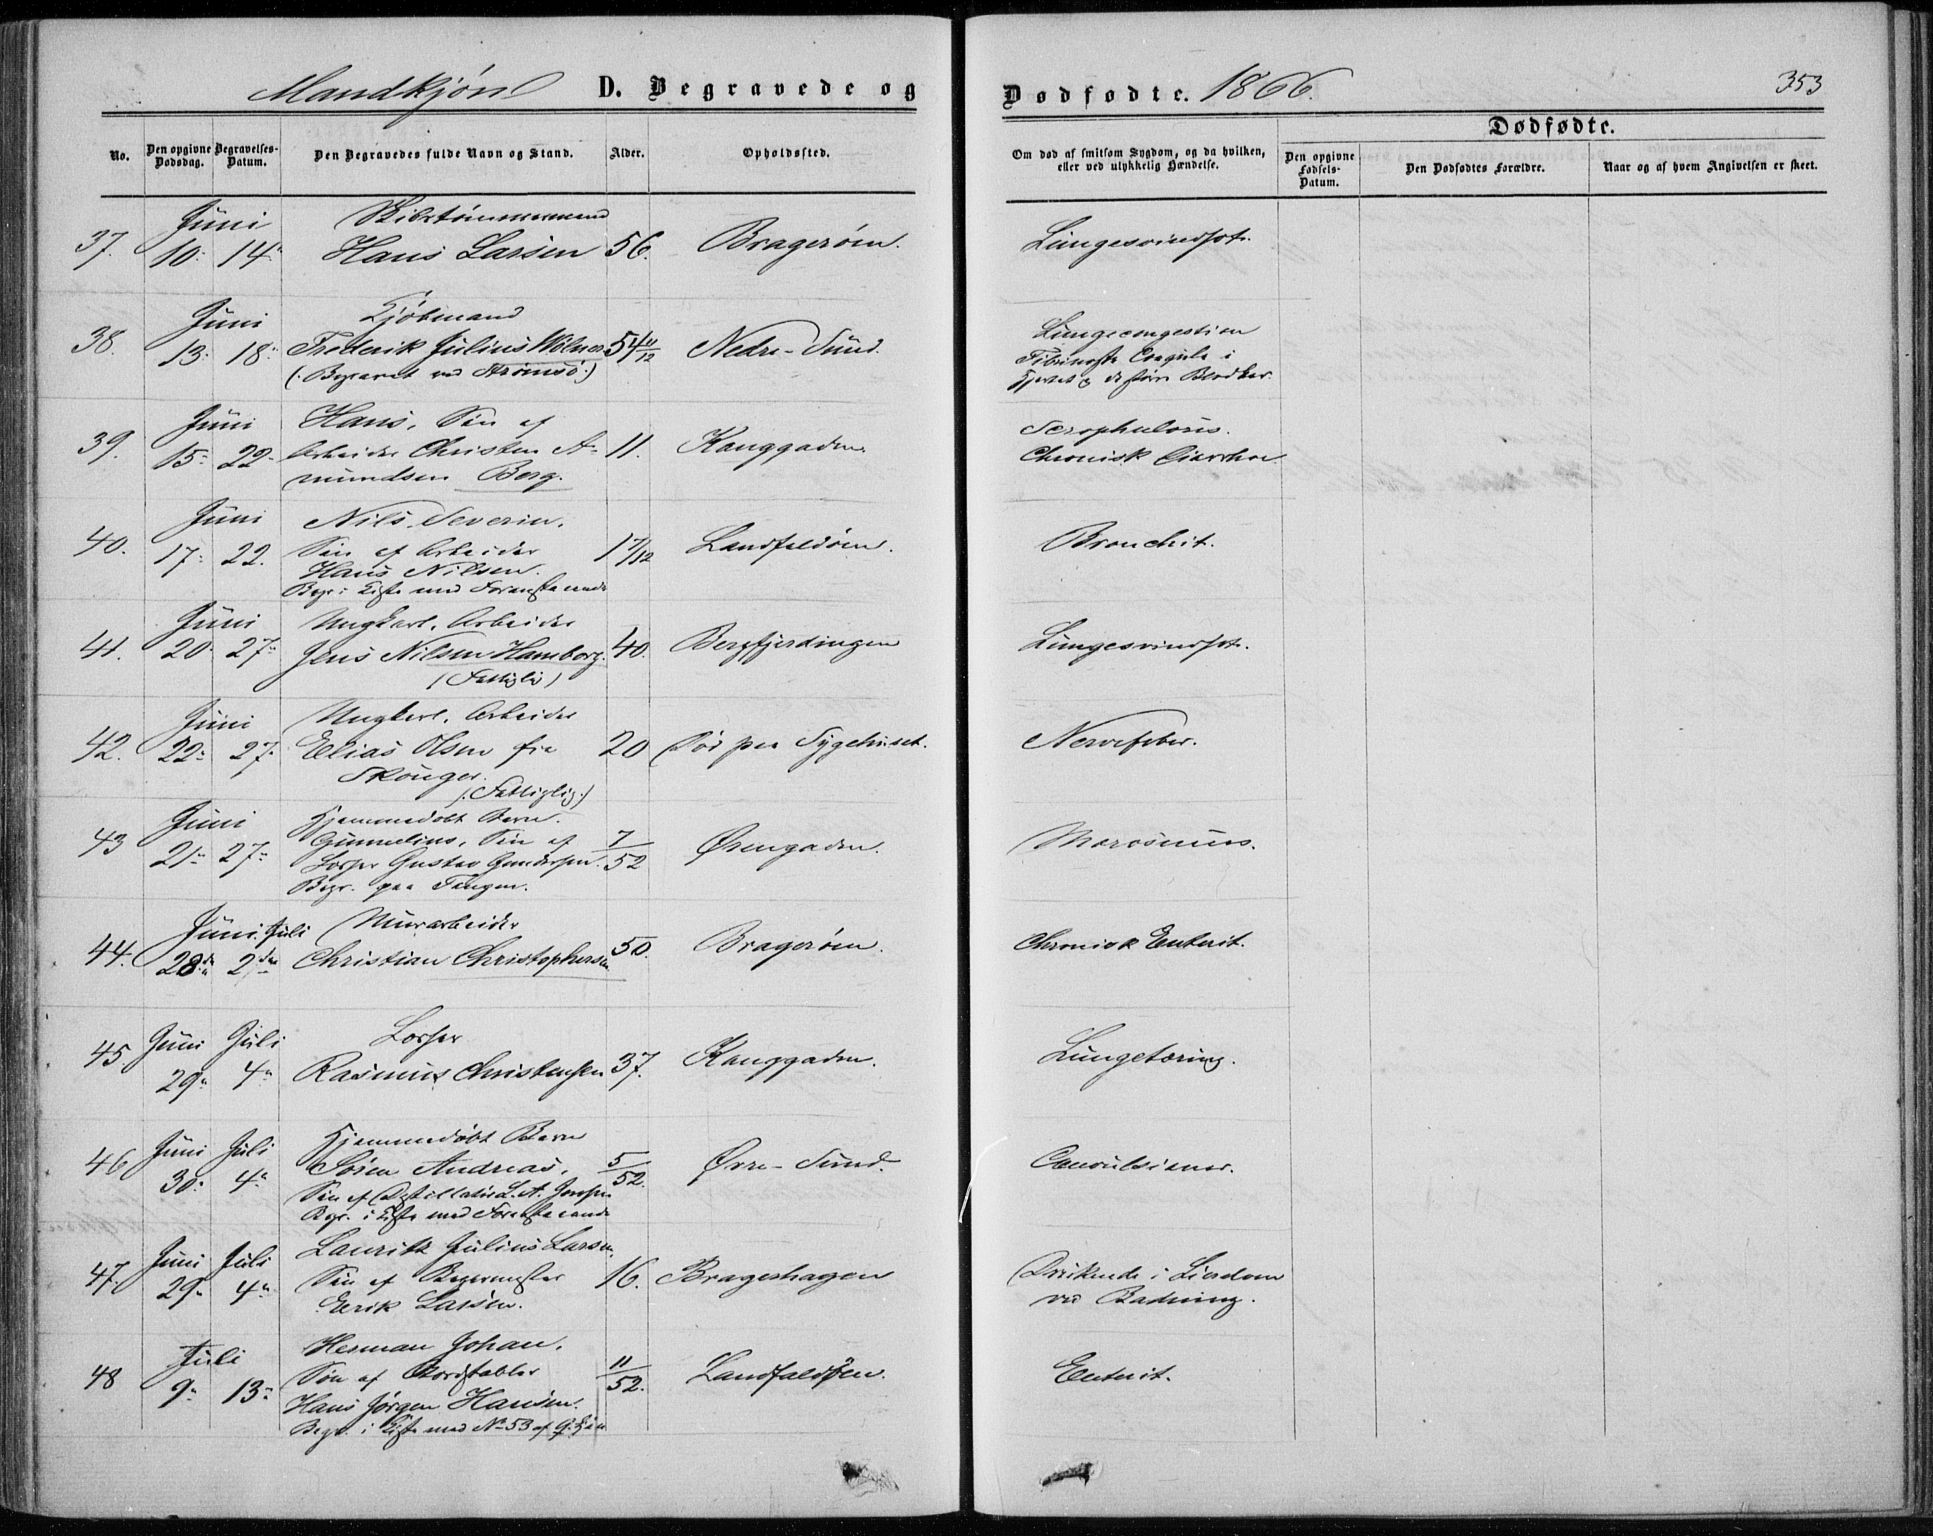 Mandkjøn D. Begravede og
Dødfødte. 1866.
353
No. Den opgivne Dødsdag. Begravelses-Datum. Den Begravedes fulde Navn og Stand. Alder. Opholdssted.
Om død af smitsom Sygdom, og da hvilken, eller ved ulykkelig Hændelse.
Dødfødte.
Den opgivne Fødsels-Datum. Den Dødfødtes Forældre. Naar og af hvem Angivelsen er skeet.
Juni Skibstømmermand
37. 10. 14. Hans Larsen 56. Bragerøen. Lungesvindsot.
Juni Kjøbmand
38. 13. 18. Frederik Julius 54 11/12 Nedre-Sund. Lungecongestion
(. Begravet ved Strømsø .) Fibrinøse Coagula i
Hjertet og de større Blodkar.
Juni Hans, Søn af
39. 15. 22. Arbeider Christen A- 11. Konggaden. Scrophulosis.
mundsen Berg. Chronisk Diarrhoe
Juni Nils Severin,
40. 17. 22. Søn af Arbeider 1 7/12 Landfaldøen. Bronchit.
Hans Nilsen.
Begr. i Kiste med Foranstaaende
Juni Ungkarl, Arbeider
41. 20. 27. Jens Nilsen Hamborg. 40. Bergfjerdingen Lungesvindsot.
(Fattiglig)
Juni Ungkarl, Arbeider
42. 22. 27. Elias Olsen fra 20 Død paa Sygehuset. Nervefeber.
Skouger.
(. Fattiglig .)
Juni Hjemmedøbt Barn.
43 21. 27. Gunnelius, Søn af 7/52 Ørengaden. Marasmus.
Losser Gustav Gundersen.
Begr. paa Tangen.
Juni Juli Murarbeider
44. 28de 2den Christian Christophersen 50. Bragerøen. Chronisk Enterit.
Juni Juli Losser
45. 29. 4. Rasmus Christensen 37. Konggaden. Lungetæring.
Juni Juli Hjemmedøbt Barn
46. 30. 4. Søren Andreas, 5/52. Øvre-Sund. Convulsioner.
Søn af Destillatør L. A. Jensen
Begr. i Kiste med Foranstaaende
Juni Juli Lauritz Julius Larsen,
47. 29. 4. Søn af Bagermester 16. Brageshagen Druknede i Lierelven
Eerik Larsen. ved Badning.
Juli Herman Johan,
48 9. 13. Søn af Bordstabler 11/52. Landfaldøen. Enterit.
Hans Jørgen Hansen.
Begr. i Kiste med No 53 af Q. Kjøn